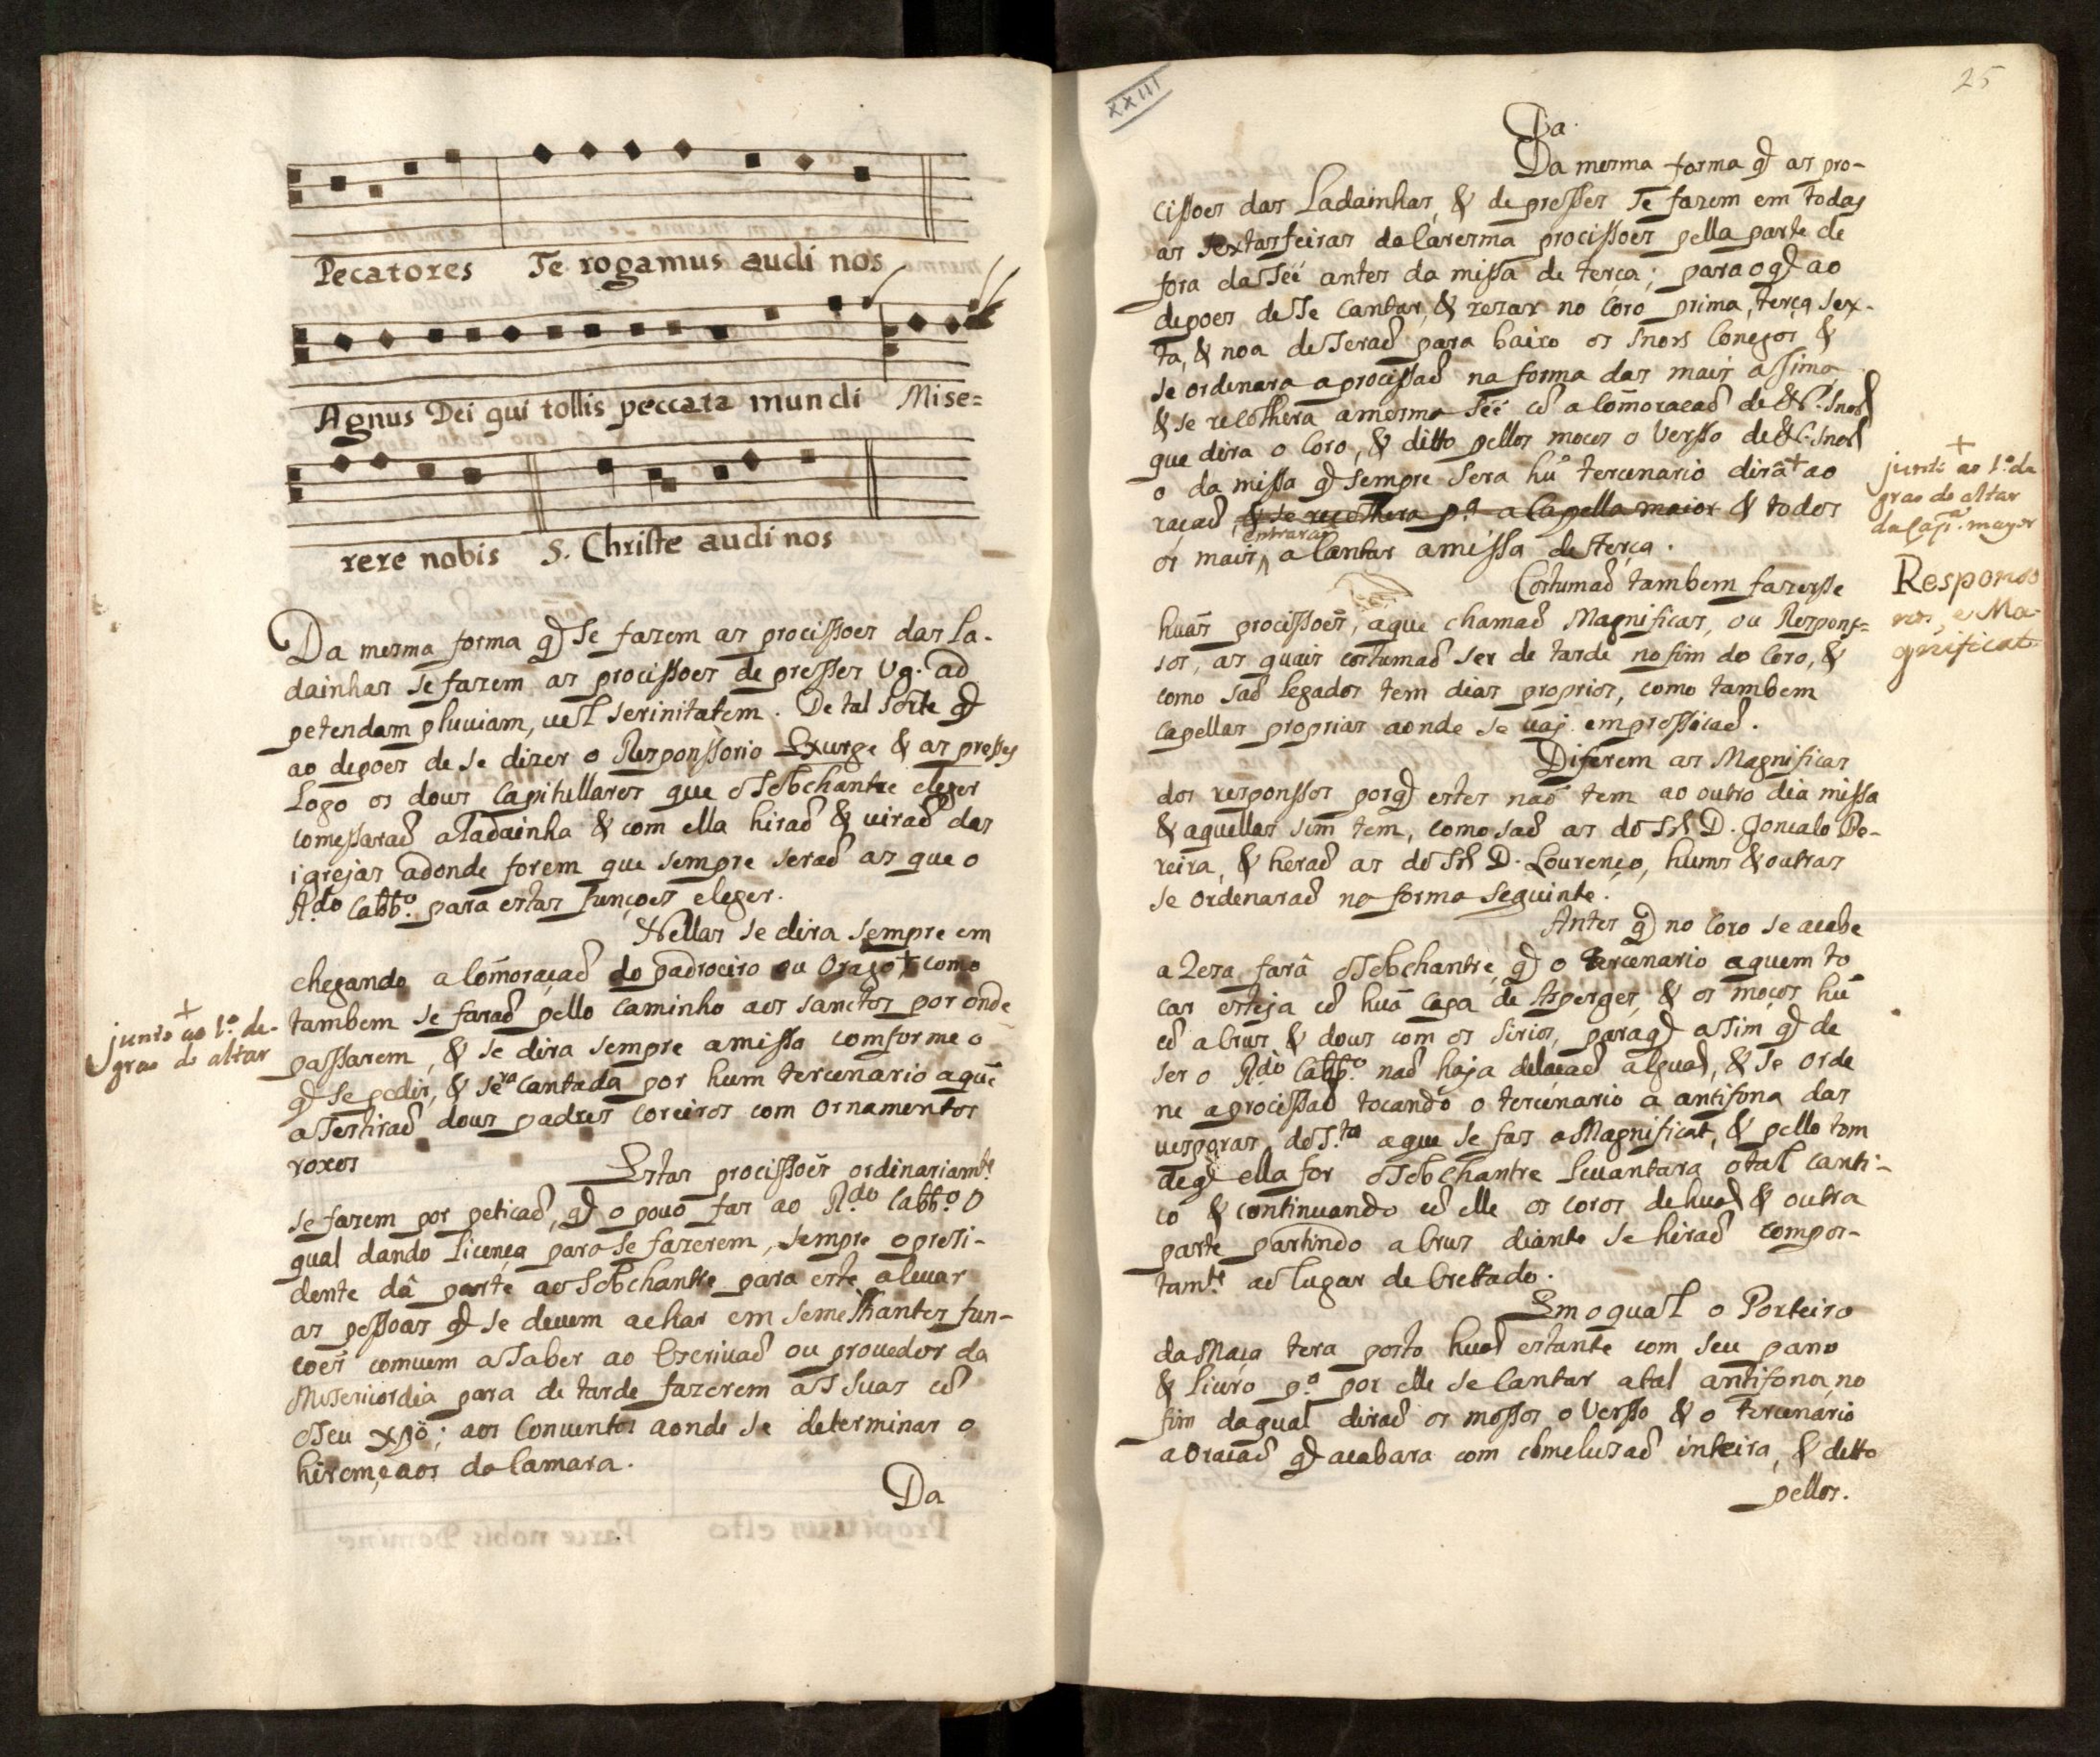 Pecatores Te rogamus audi nos
Agnus Dei qui tollis peccata mundi Mise=
rere nobis S. Christe audi nos
Da mesma forma q̃ se fazem as procissoes das La-
dainhas se fazem as procissoes de presses Vg. ad
petendam pluviam, vel serinitatem. De tal sorte q̃
ao depoes de se dizer o Responssorio Exurge & as presses
Logo os dous Capitullares que o Sobchantre eleger
comessaraõ a Ladainha & com ella hiraõ & viraõ das
igrejas adonde forem que sempre seraõ as que o
R.do Cabb.o para estas funçoes eleger.
Nellas se dira sempre em
chegando a Com̃oraçaõ do padroeiro ou Orago + como
tambem se faraõ pello caminho aos sanctos por onde
passarem, & se dira sempre a missa comforme o
q̃ se pedir, & sera cantada por hum tercenario a quẽ
asestiraõ dous padres coreiros com ornamentos
roxos
+
junto ao 1.o de-
grao do altar
Estas procissoẽs ordinariam.te
se fazem por petiçaõ, q̃ o povo fas ao R.do Cabb.o o
qual dando licença para se fazerem, sempre o presi-
dente dâ parte ao Sobchantre para este avizar
as pessoas q̃ se devem achar em semelhantes fun-
coẽs comvem a saber ao Escrivaõ ou provedor da
Misericordia para de tarde fazerem as suas cõ
o seu xp̃o; aos Conventos aonde se determinar o
hirem, e aos da Camara.
Da
XXIII
25
Da
Da mesma forma q̃ as pro-
cissoes das Ladainhas, & de presses se fazem em todas
as sextas feiras da Caresma procissoes pella parte de
fora da Seé antes da missa de terça; para o q̃ ao
depoes de se Cantar, & rezar no Coro prima, terça sex-
ta, & noa desceraõ para baixo os snors Conegos &
se ordenara a procissaõ na forma das mais assima
& se recolhera a mesma Seé cõ a Com̃oracaõ de N. Snor̃
que dira o Coro, & ditto pellos mocos o Versso de N. Snor̃
o da missa q̃ sempre sera hũ tercenario dirâ + ao
raçaõ & se recolhera p.a a Capella maior & todos
os mais entraraõ a Cantar a missa de terça.
+
junto ao 1.o de
grao do altar
da Cap.a mayor
Costumaõ tambem fazersse
huãs procissoẽs, a que chamaõ Magnificas, ou Respons=
sos, as quais costumaõ ser de tarde no fim do Coro, &
como saõ legados tem dias proprios, como tambem
capellas proprias aonde se vaj em prossicaõ.
Responso
ros, e Ma-
gnificat
Diferem as Magnificas
dos responssos porq̃ estes naõ tem ao outro dia missa
& aquellas sim tem, como saõ as do Sr̃ D. Goncalo Pe-
reira, & heraõ as do Sr̃ D. Lourenço, huns & outras
se ordenaraõ na forma seguinte.
Antes q̃ no Coro se acabe
a Reza farâ o Sobchantre, q̃ o tercenario a quem to
car esteja cõ huã capa de Asperges, & os moços hũ
cõ a Crus & dous com os sirios, para q̃ assim q̃ de
ser o R.do Cabb.o naõ haja delacaõ algũa, & se orde
ne a procissaõ tocando o tercenario a antifona das
vesporas do S.to a que se fas a Magnificat, & pello tom
de q̃ ella for o Sobchantre levantara o tal canti-
co & continuando cõ elle os coros de hũa & outra
parte partindo a Crus diante se hiraõ compos-
tam.te ao lugar decrettado.
Em o qual o Porteiro
da Maça tera posto hũa estante com seu pano
& livro p.a por elle se Cantar a tal antifona, no
fim da qual diraõ os mossos o Versso & o tercenario
a Oracaõ q̃ acabara com comcluzaõ inteira, & ditto
pellos.